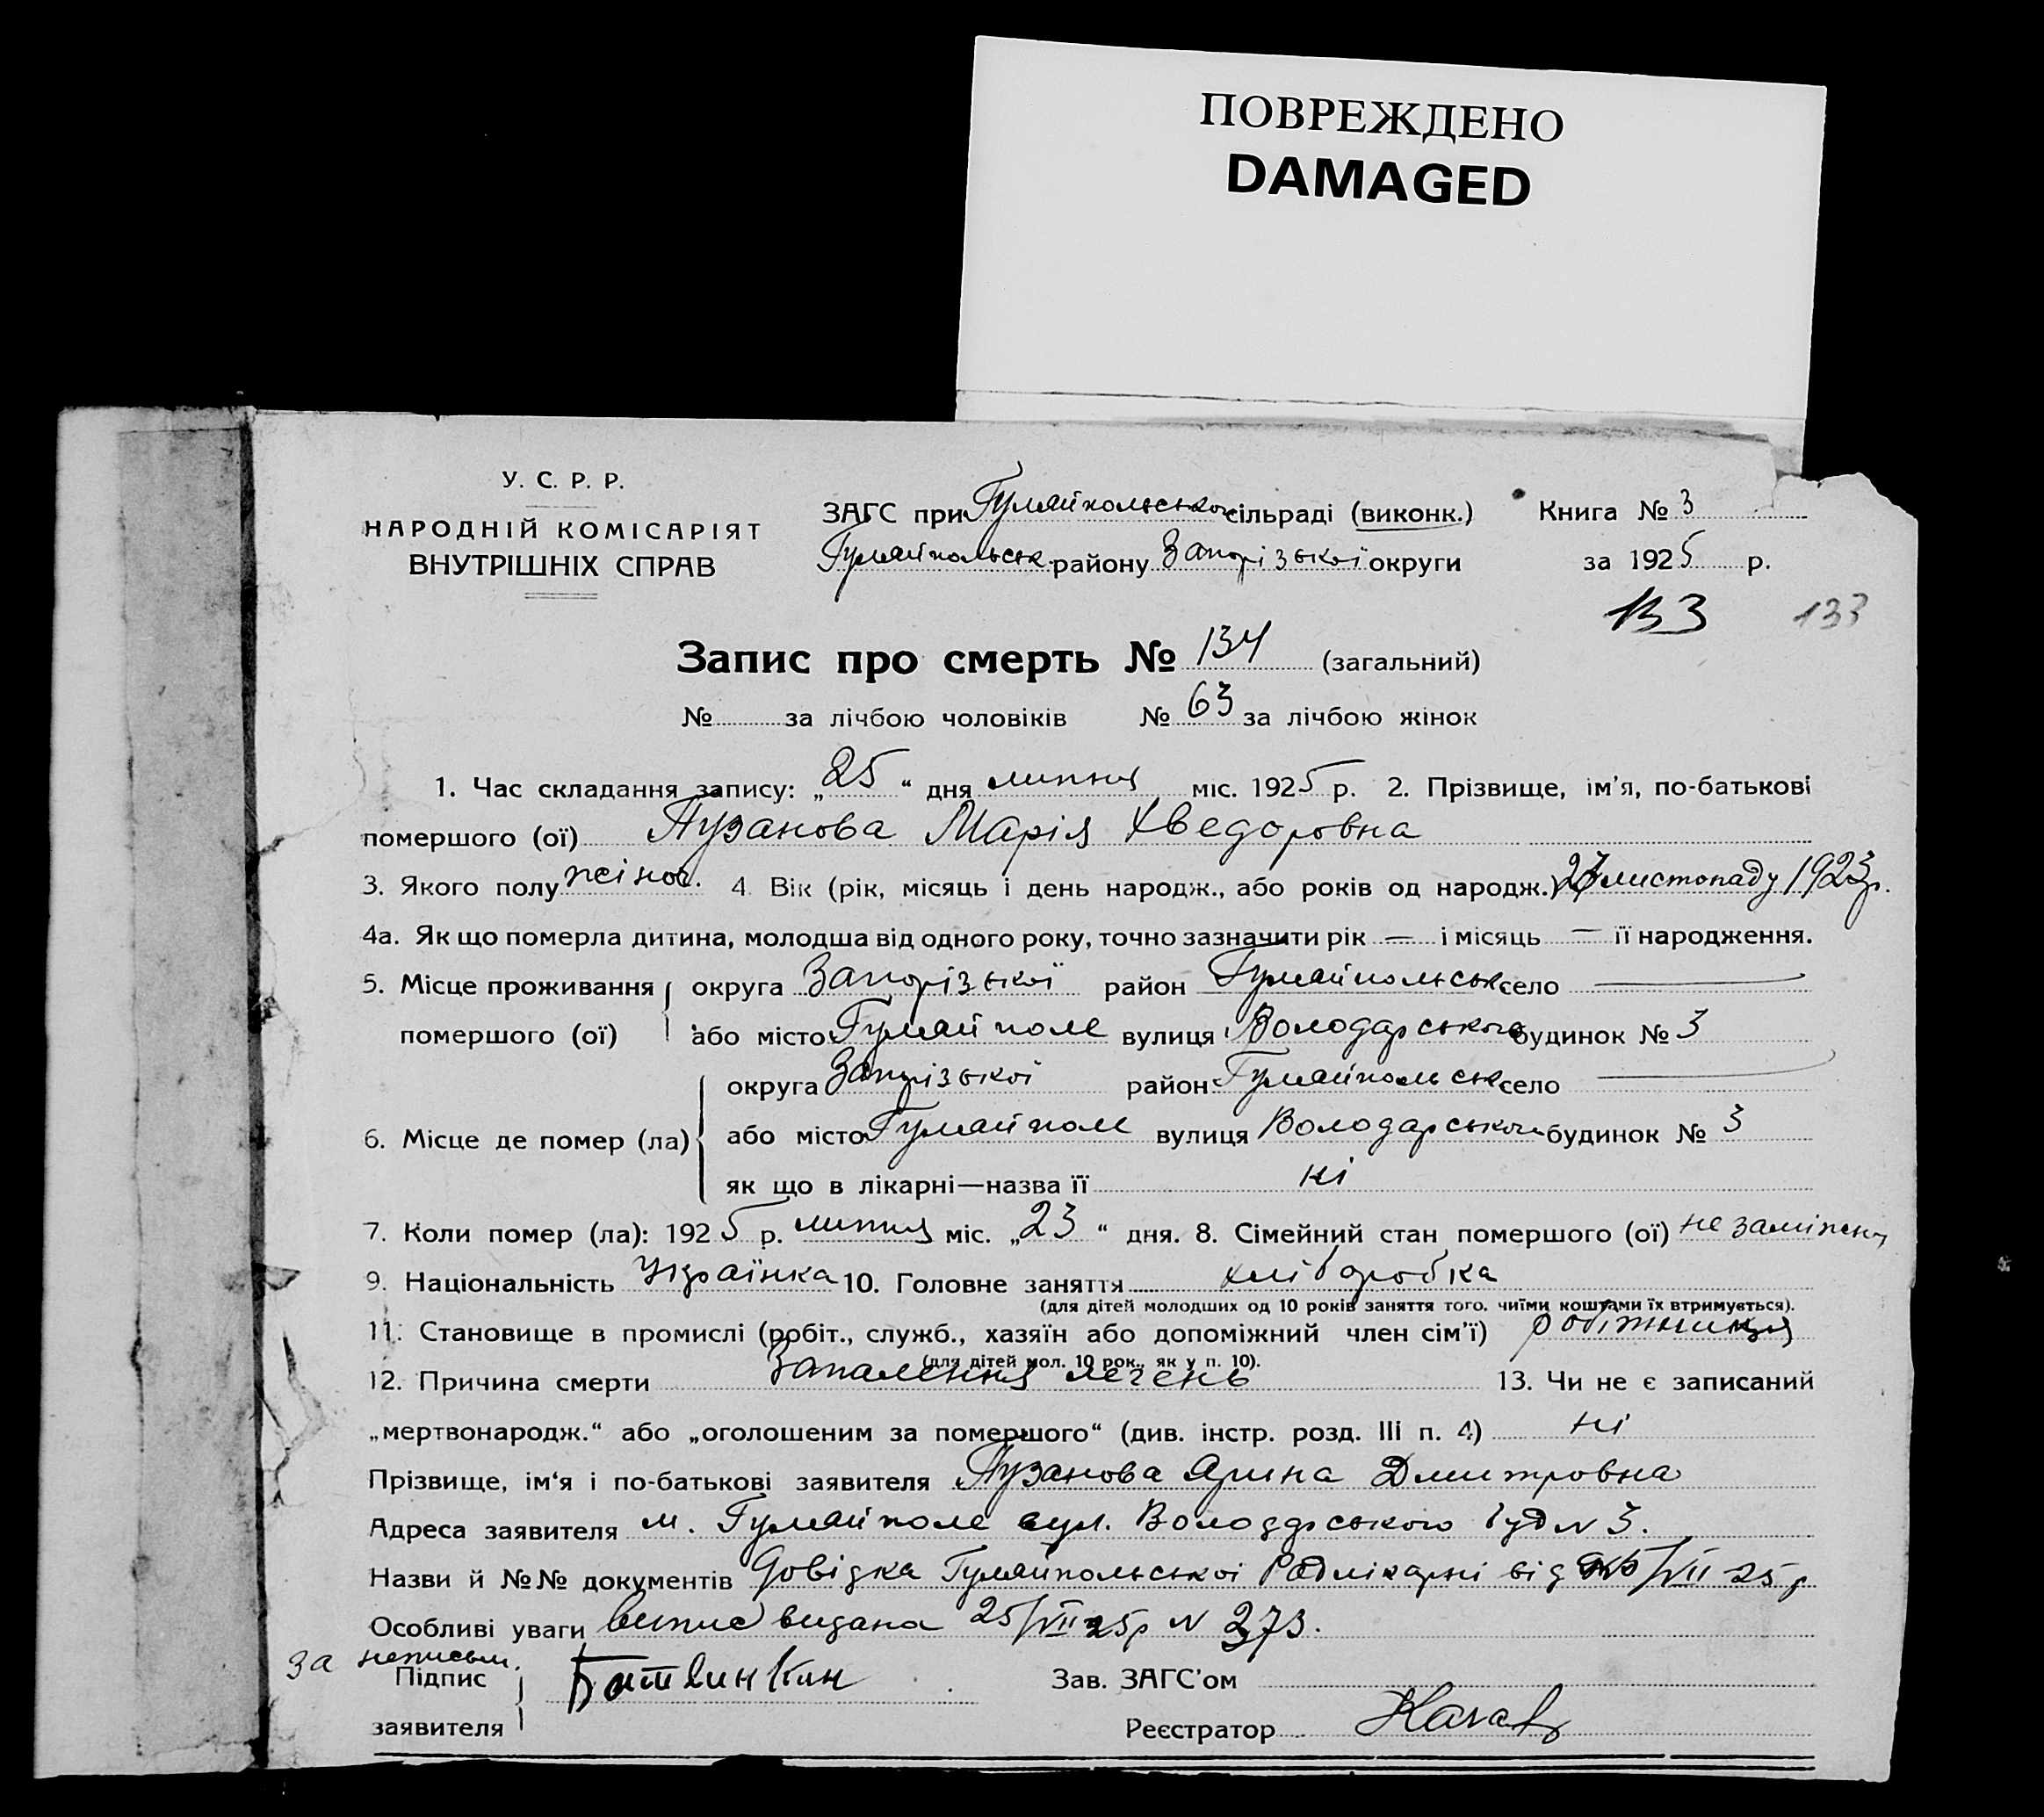 ПОВРЕЖДЕНО
DAMAGED
У. С. Р. Р.
НАРОДНІЙ КОМІСАРІЯТ
ВНУТРІШНІХ СПРАВ
ЗАГС при Гуляйпольськ сільраді (виконк.) Книга № 3
Гуляйпольськ. району Запорізької округи за 1925 р.
133 133
Запис про смерть № 134 (загальний)
№ за лічбою чоловіків № 63 за лічбою жінок
1. Час складання запису: „25“ дня липня міс. 1925 р. 2. Прізвище, ім'я, по-батькові
помершого (ої) Пузанова Марія Хведоровна
3. Якого полу жіноч. 4. Вік (рік, місяць і день народж., або років од народж.) 27 листопаду 1923 р.
4а. Як що померла дитина, молодша від одного року, точно зазначити рік — і місяць — її народження.
5. Місце проживання округа Запорізької район Гуляйпольськ село —
помершого (ої) або місто Гуляйполе вулиця Володарського будинок № 3
округа Запорізької район Гуляйпольськ село —
6. Місце де помер (ла) або місто Гуляйполе вулиця Володарського будинок № 3
як що в лікарні—назва її ні
7. Коли помер (ла): 1925 р. липня міс. „23“ дня. 8. Сімейний стан помершого (ої) не заміжня
9. Національність Українка 10. Головне заняття хліборобка
(для дітей молодших од 10 років заняття того, чиїми коштами їх втримується).
11. Становище в промислі (робіт., служб., хазяїн або допоміжний член сім'ї) робітниця
(для дітей мол. 10 рок., як у п. 10).
12. Причина смерти Запалення легень 13. Чи не є записаний
„мертвонародж.“ або „оголошеним за помершого“ (див. інстр. розд. III п. 4) ні
Прізвище, ім'я і по-батькові заявителя Пузанова Ярина Дмитровна
Адреса заявителя м. Гуляйполе вул. Володарського буд N 3.
Назви й №№ документів Довідка Гуляйпольської Радлікарні від /VII 25 р
Особливі уваги випис видана 25/VII 25 р N 273.
за неписьм.
Підпис
заявителя
Зав. ЗАГС'ом
Реєстратор